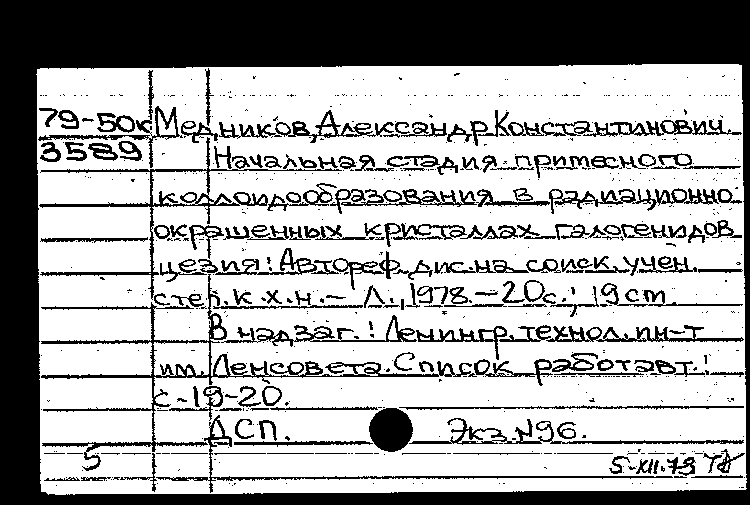 79-50к Медников, Александр Константинович.
3589 Начальная стадия примесного
коллоидообразования в радиационно
окрашенных кристаллах галогенидов
цезия: Автореф. дис. на соиск. учен.
степ. к.х.н. - Л., 1978. - 20с.; 19 cm.
В надзаг.: Ленингр. технол. ин-т
им. Ленсовета. Список работ авт.:
с-19-20.
ДСП. Экз. N96.
5 5-XII-79